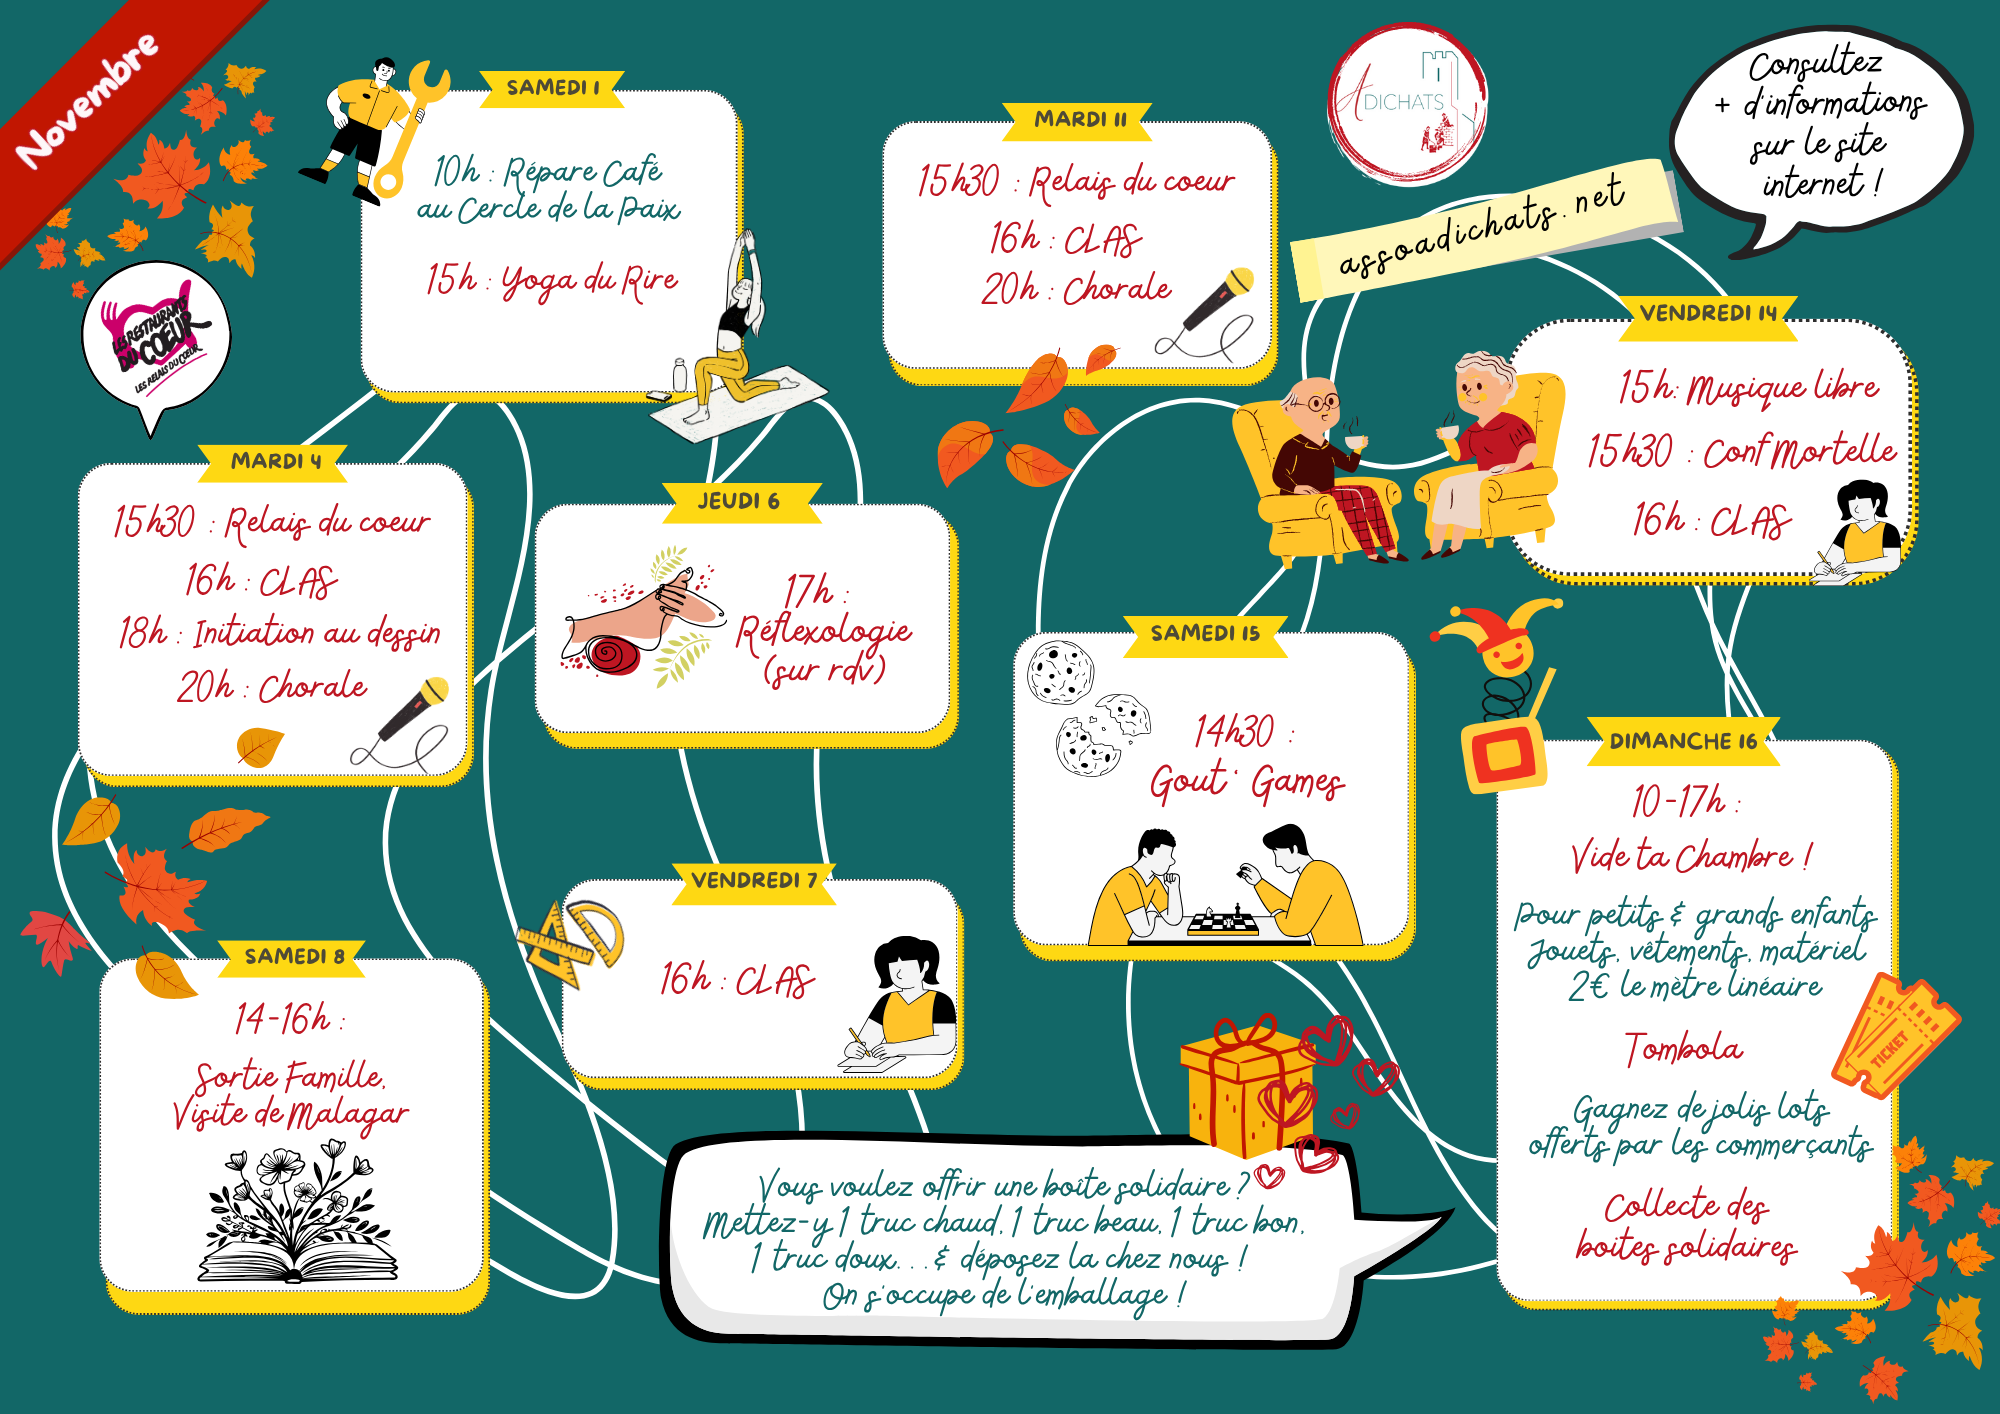 Novembre
SAMEDI 1
10h : Répare Café
au Cercle de la Paix
15h : Yoga du Rire
MARDI 11
15h30 : Relais du coeur
16h : CLAS
20h : Chorale
ADICHATS
Consultez
+ d'informations
sur le site
internet !
assoadichats.net
LES RESTAURANTS
DU COEUR
LES RELAIS DU COEUR
VENDREDI 14
15h: Musique libre
15h30 : Conf Mortelle
16h : CLAS
MARDI 4
15h30 : Relais du coeur
16h : CLAS
18h : Initiation au dessin
20h : Chorale
JEUDI 6
17h :
Réflexologie
(sur rdv)
SAMEDI 15
14h30 :
Gout' Games
DIMANCHE 16
10-17h :
Vide ta Chambre !
Pour petits & grands enfants
Jouets, vêtements, matériel
2€ le mètre linéaire
Tombola
TICKET
Gagnez de jolis lots
offerts par les commerçants
Collecte des
boites solidaires
VENDREDI 7
16h : CLAS
SAMEDI 8
14-16h :
Sortie Famille,
Visite de Malagar
Vous voulez offrir une boîte solidaire ?
Mettez-y 1 truc chaud, 1 truc beau, 1 truc bon,
1 truc doux...& déposez la chez nous !
On s'occupe de l'emballage !